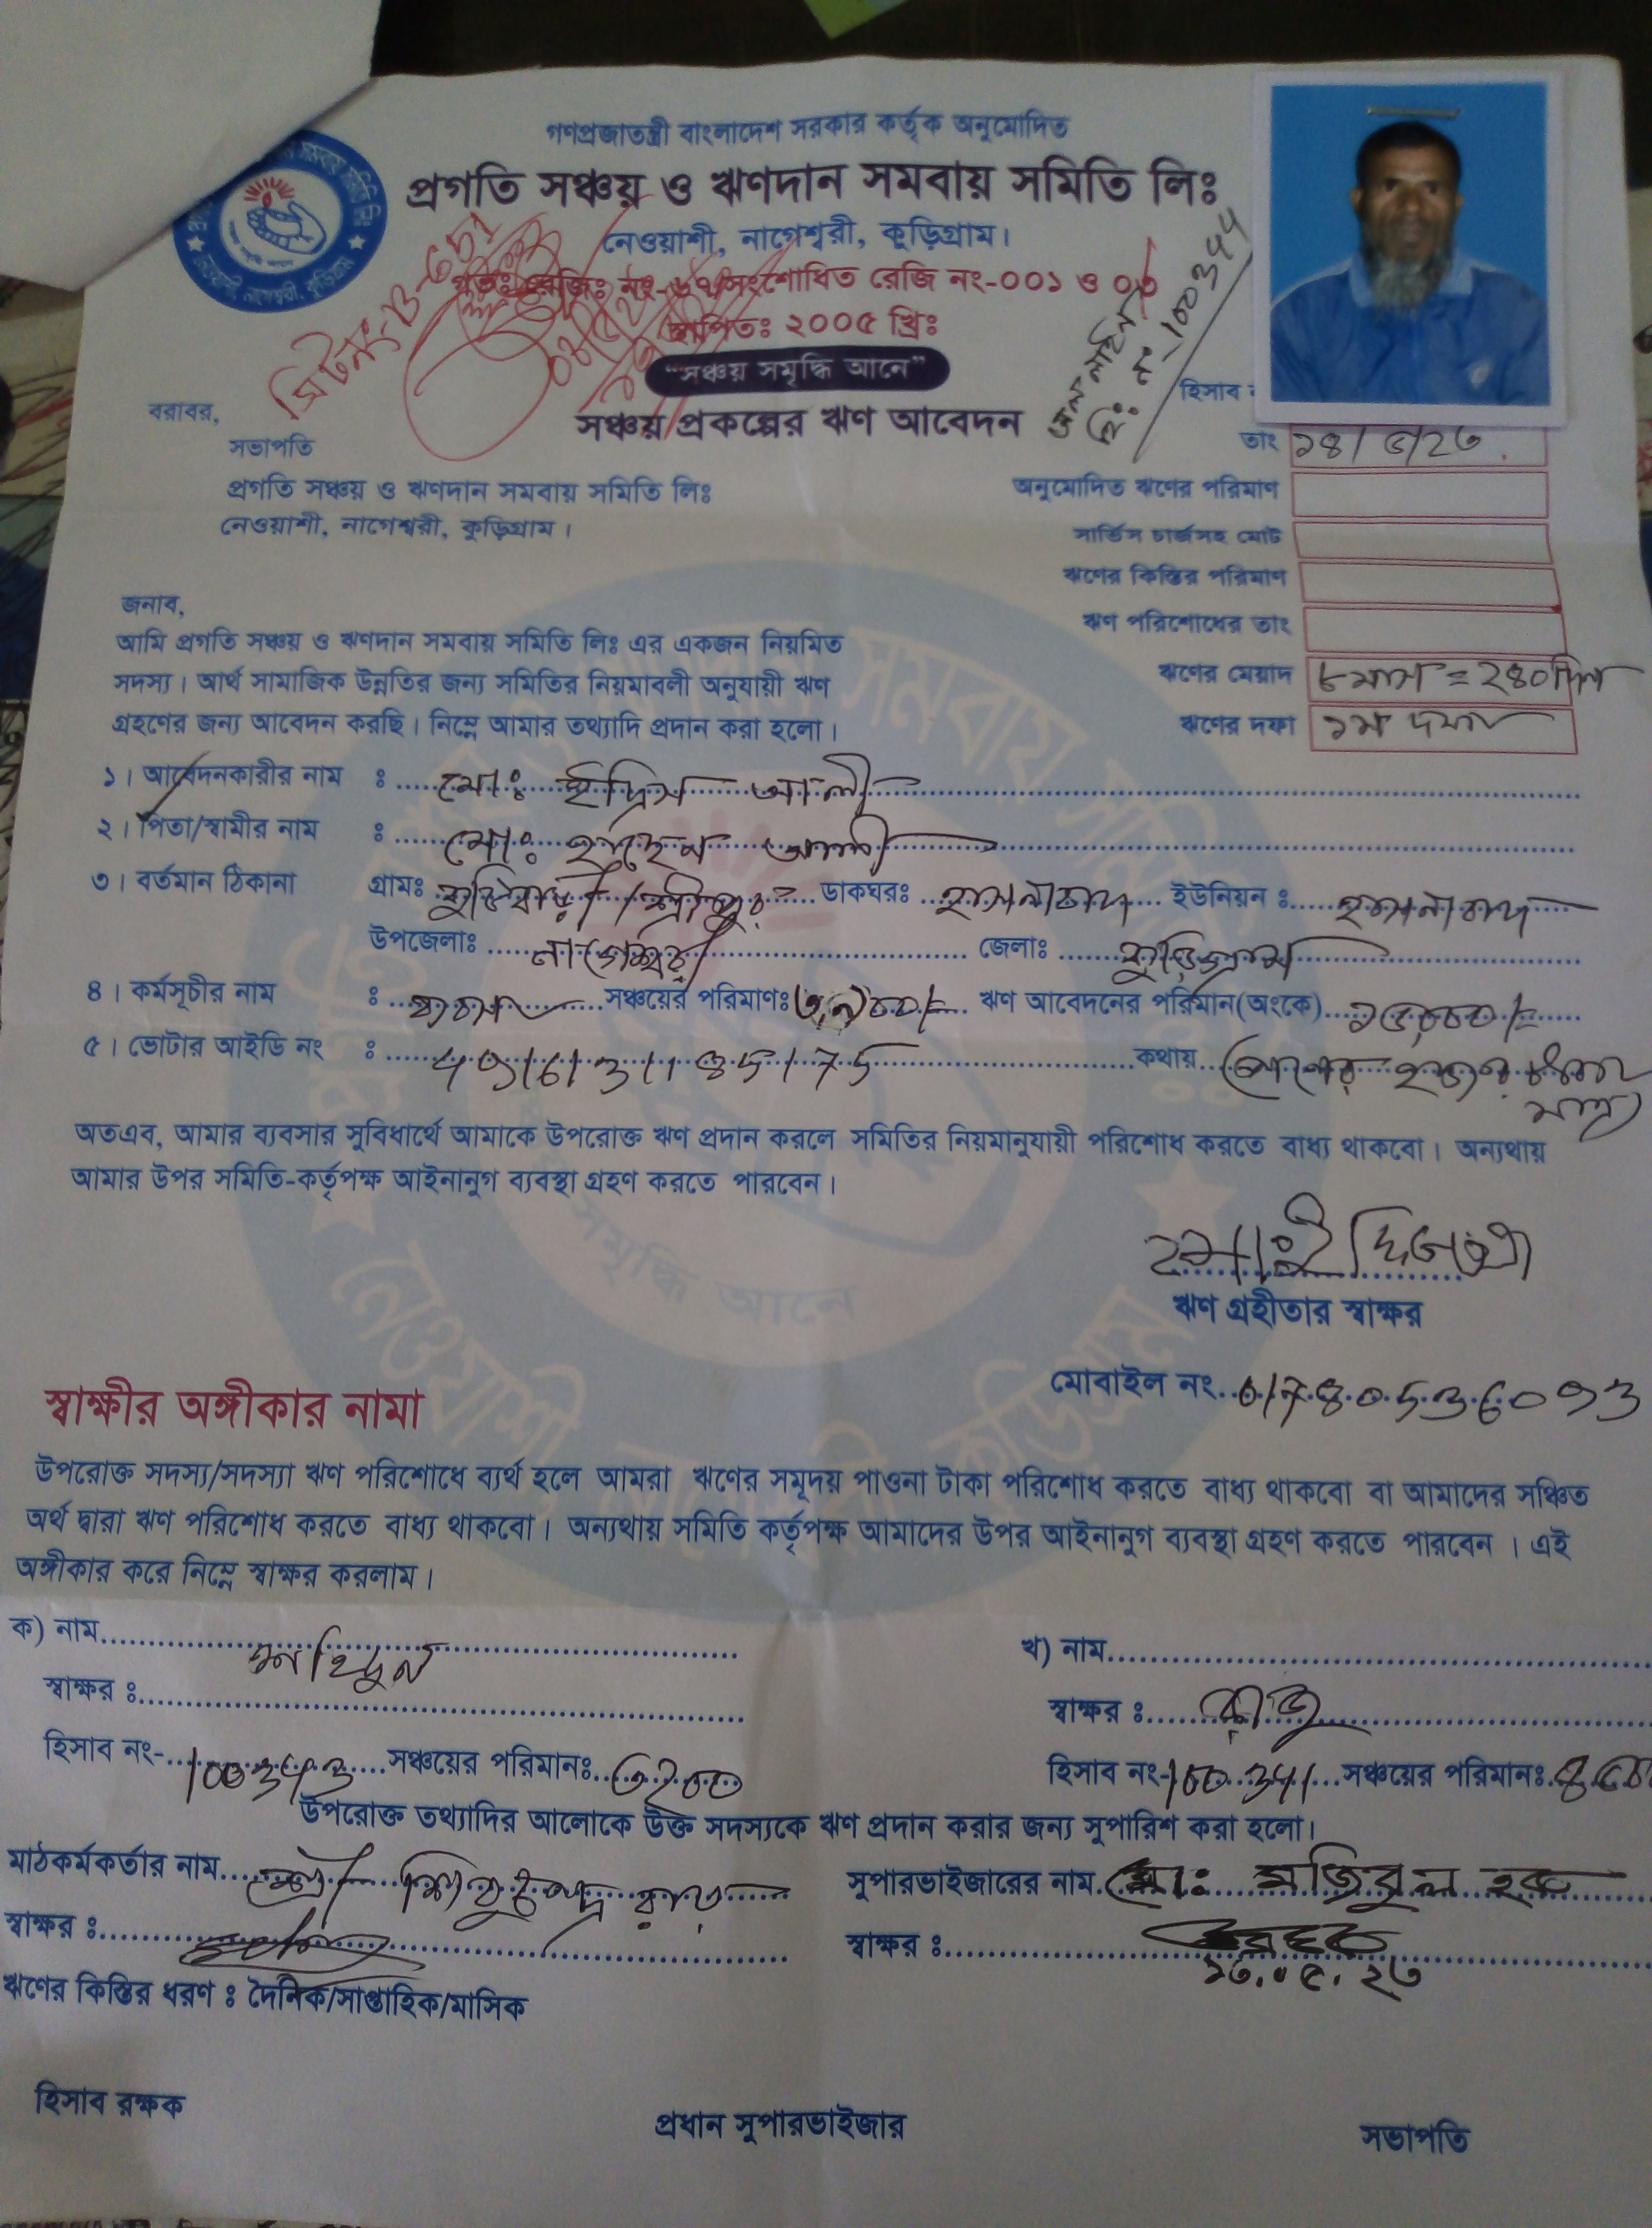 গণপ্রজাতন্ত্রী বাংলাদেশ সরকার কর্তৃক অনুমোদিত
প্রগতি সঞ্চয় ও ঋণদান সমবায় সমিতি লিঃ
নেওয়াশী, নাগেশ্বরী, কুড়িগ্রাম।
রেজিঃ নং-৬৭/সংশোধিত রেজি নং-০০১ ও
স্থাপিতঃ ২০০৫ খ্রিঃ
"সঞ্চয় সমৃদ্ধি আনে"
সঞ্চয় প্রকল্পের ঋণ আবেদন
নং-100344
হিসাব
বরাবর,
সভাপতি
প্রগতি সঞ্চয় ও ঋণদান সমবায় সমিতি লিঃ
নেওয়াশী, নাগেশ্বরী, কুড়িগ্রাম।
তাং ১৪/৫/২৩
অনুমোদিত ঋণের পরিমাণ
সার্ভিস চার্জসহ মোট
ঋণের কিস্তির পরিমাণ
ঋণ পরিশোধের তাং
ঋণের মেয়াদ ৮মাস = ২৪০দিন
ঋণের দফা ১ম দফা
জনাব,
আমি প্রগতি সঞ্চয় ও ঋণদান সমবায় সমিতি লিঃ এর একজন নিয়মিত
সদস্য। আর্থ সামাজিক উন্নতির জন্য সমিতির নিয়মাবলী অনুযায়ী ঋণ
গ্রহণের জন্য আবেদন করছি। নিম্নে আমার তথ্যাদি প্রদান করা হলো।
১। আবেদনকারীর নাম : মোঃ ইদ্রিস আলী
২। পিতা/স্বামীর নাম : মোঃ আলী
৩। বর্তমান ঠিকানা গ্রামঃ কুটিবাড়ী / শ্রীপুর ডাকঘরঃ হাসনাবাদ ইউনিয়ন : হাসনাবাদ
উপজেলাঃ নাগেশ্বরী জেলাঃ কুড়িগ্রাম
৪। কর্মসূচীর নাম : ব্যবসা সঞ্চয়ের পরিমাণঃ ঋণ আবেদনের পরিমান(অংকে) ১৫,০০০/=
৫। ভোটার আইডি নং : কথায় পনের হাজার টাকা
মাত্র
অতএব, আমার ব্যবসার সুবিধার্থে আমাকে উপরোক্ত ঋণ প্রদান করলে সমিতির নিয়মানুযায়ী পরিশোধ করতে বাধ্য থাকবো। অন্যথায়
আমার উপর সমিতি-কর্তৃপক্ষ আইনানুগ ব্যবস্থা গ্রহণ করতে পারবেন।
ঋণ গ্রহীতার স্বাক্ষর
মোবাইল নং
স্বাক্ষীর অঙ্গীকার নামা
উপরোক্ত সদস্য/সদস্যা ঋণ পরিশোধে ব্যর্থ হলে আমরা ঋণের সমূদয় পাওনা টাকা পরিশোধ করতে বাধ্য থাকবো বা আমাদের সঞ্চিত
অর্থ দ্বারা ঋণ পরিশোধ করতে বাধ্য থাকবো। অন্যথায় সমিতি কর্তৃপক্ষ আমাদের উপর আইনানুগ ব্যবস্থা গ্রহণ করতে পারবেন । এই
অঙ্গীকার করে নিম্নে স্বাক্ষর করলাম।
ক) নাম
স্বাক্ষর :
হিসাব নং- 100343 সঞ্চয়ের পরিমানঃ ৩২০০
খ) নাম
স্বাক্ষর :
হিসাব নং- 100341 সঞ্চয়ের পরিমানঃ
উপরোক্ত তথ্যাদির আলোকে উক্ত সদস্যকে ঋণ প্রদান করার জন্য সুপারিশ করা হলো।
মাঠকর্মকর্তার নাম শ্রী রায়
স্বাক্ষর :
সুপারভাইজারের নাম মোঃ মজিবুল হক
স্বাক্ষর :
ঋণের কিস্তির ধরণ : দৈনিক/সাপ্তাহিক/মাসিক
হিসাব রক্ষক
প্রধান সুপারভাইজার
সভাপতি